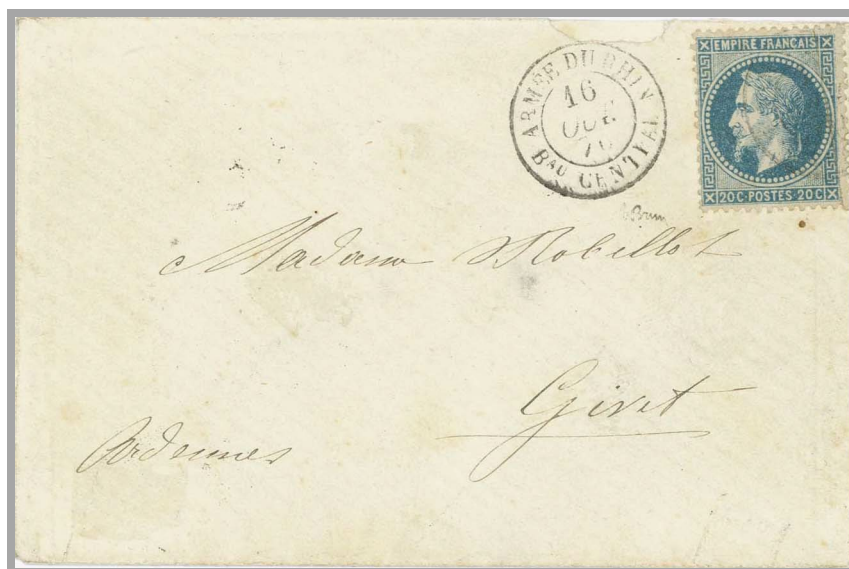 ARMÉE DU RHIN
16
OCT
70
Bau CENTRAL
EMPIRE FRANÇAIS
20C·POSTES·20C
Madame Robillot
Givet
Ardennes